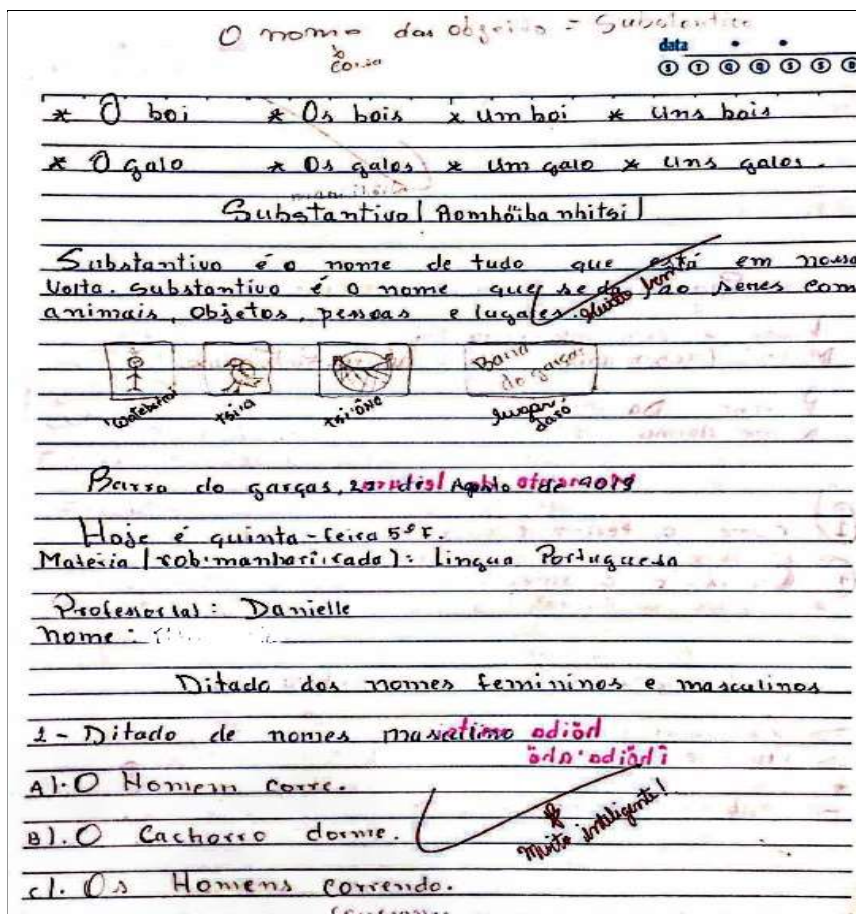 O nome das objeito = Substantivo
coisa
data
S T Q Q S S D
* O boi * Os bois x um boi * uns bois
* O galo * Os galos x um galo * uns galos.
Substantivo (Aomhöibanhitsi)
Substantivo é o nome de tudo que está em nossa
Volta. Substantivo é o nome que se dá ao seres com
animais, objetos, pessoas e lugales. Muito bem!
Barra do garças
Watebremi tsi'a lugar
daró
Barra do garças, Agosto de 2019
Hoje é quinta-feira 5ª F.
Matéria (rob'manhari'rada): Lingua Portuguesa
Professor(a): Danielle
nome:
Ditado dos nomes femininos e masculinos
1- Ditado de nomes masculino
A). O Homem corre.
B). O Cachorro dorme.
Muito inteligente!
c). Os Homens correndo.